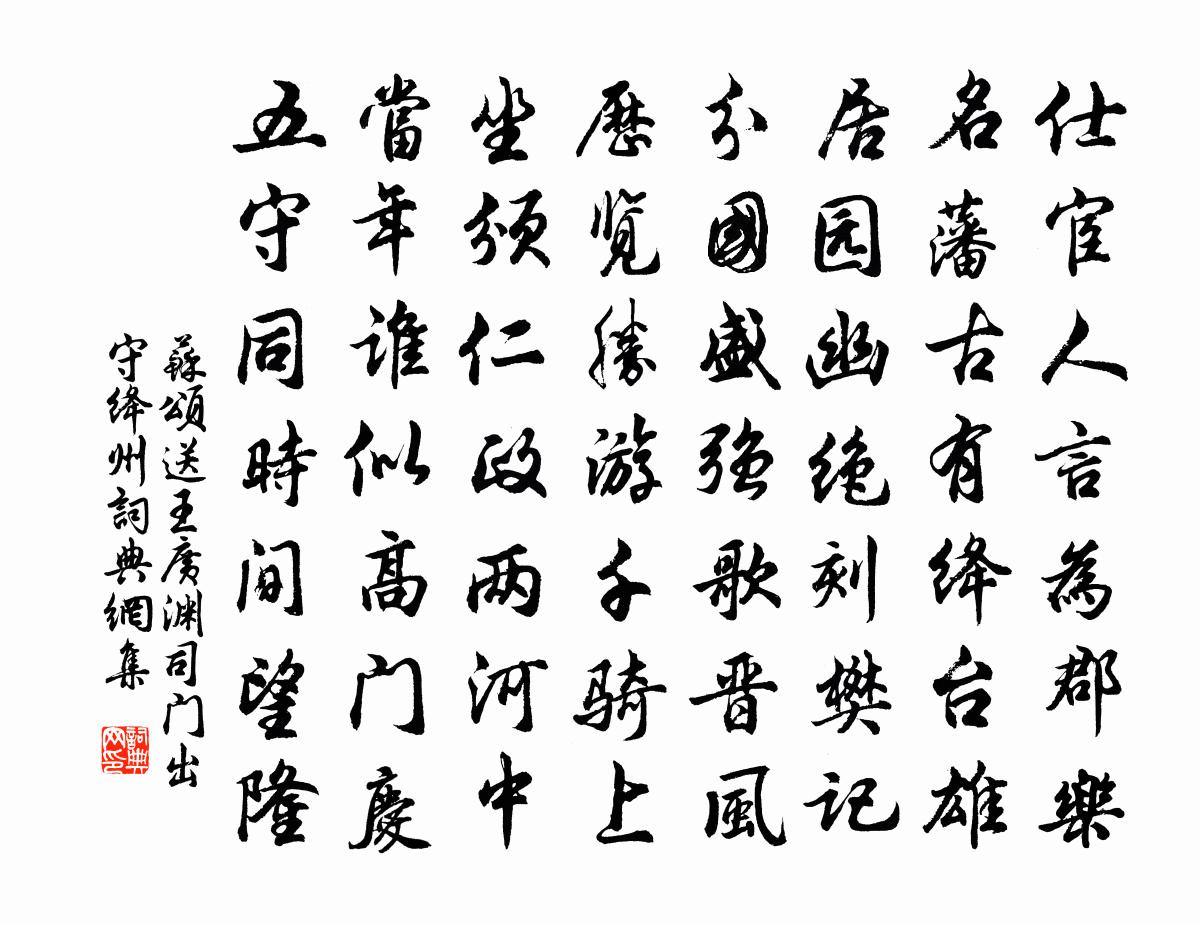 仕宦人言為郡樂
名藩古有绛台雄
居园幽绝刻樊記
分國盛强歌晋風
歷覽勝游千骑上
坐頒仁政两河中
當年誰似高门慶
五守同時间望隆
蘇頌送王廣渊司门出
守绛州詞典網集
詞典
网印